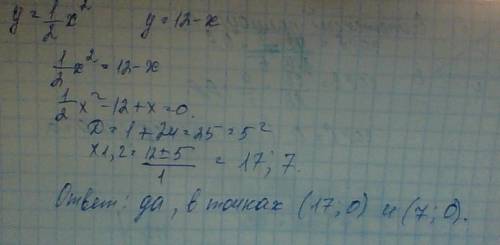 y = 1/2 x² y = 12 - x
1/2 x² = 12 - x
1/2 x² - 12 + x = 0.
D = 1 + 24 = 25 = 5²
x1,2 = (12 ± 5)/1 = 17; 7.
Ответ: да, в точках (17; 0) и (7; 0).